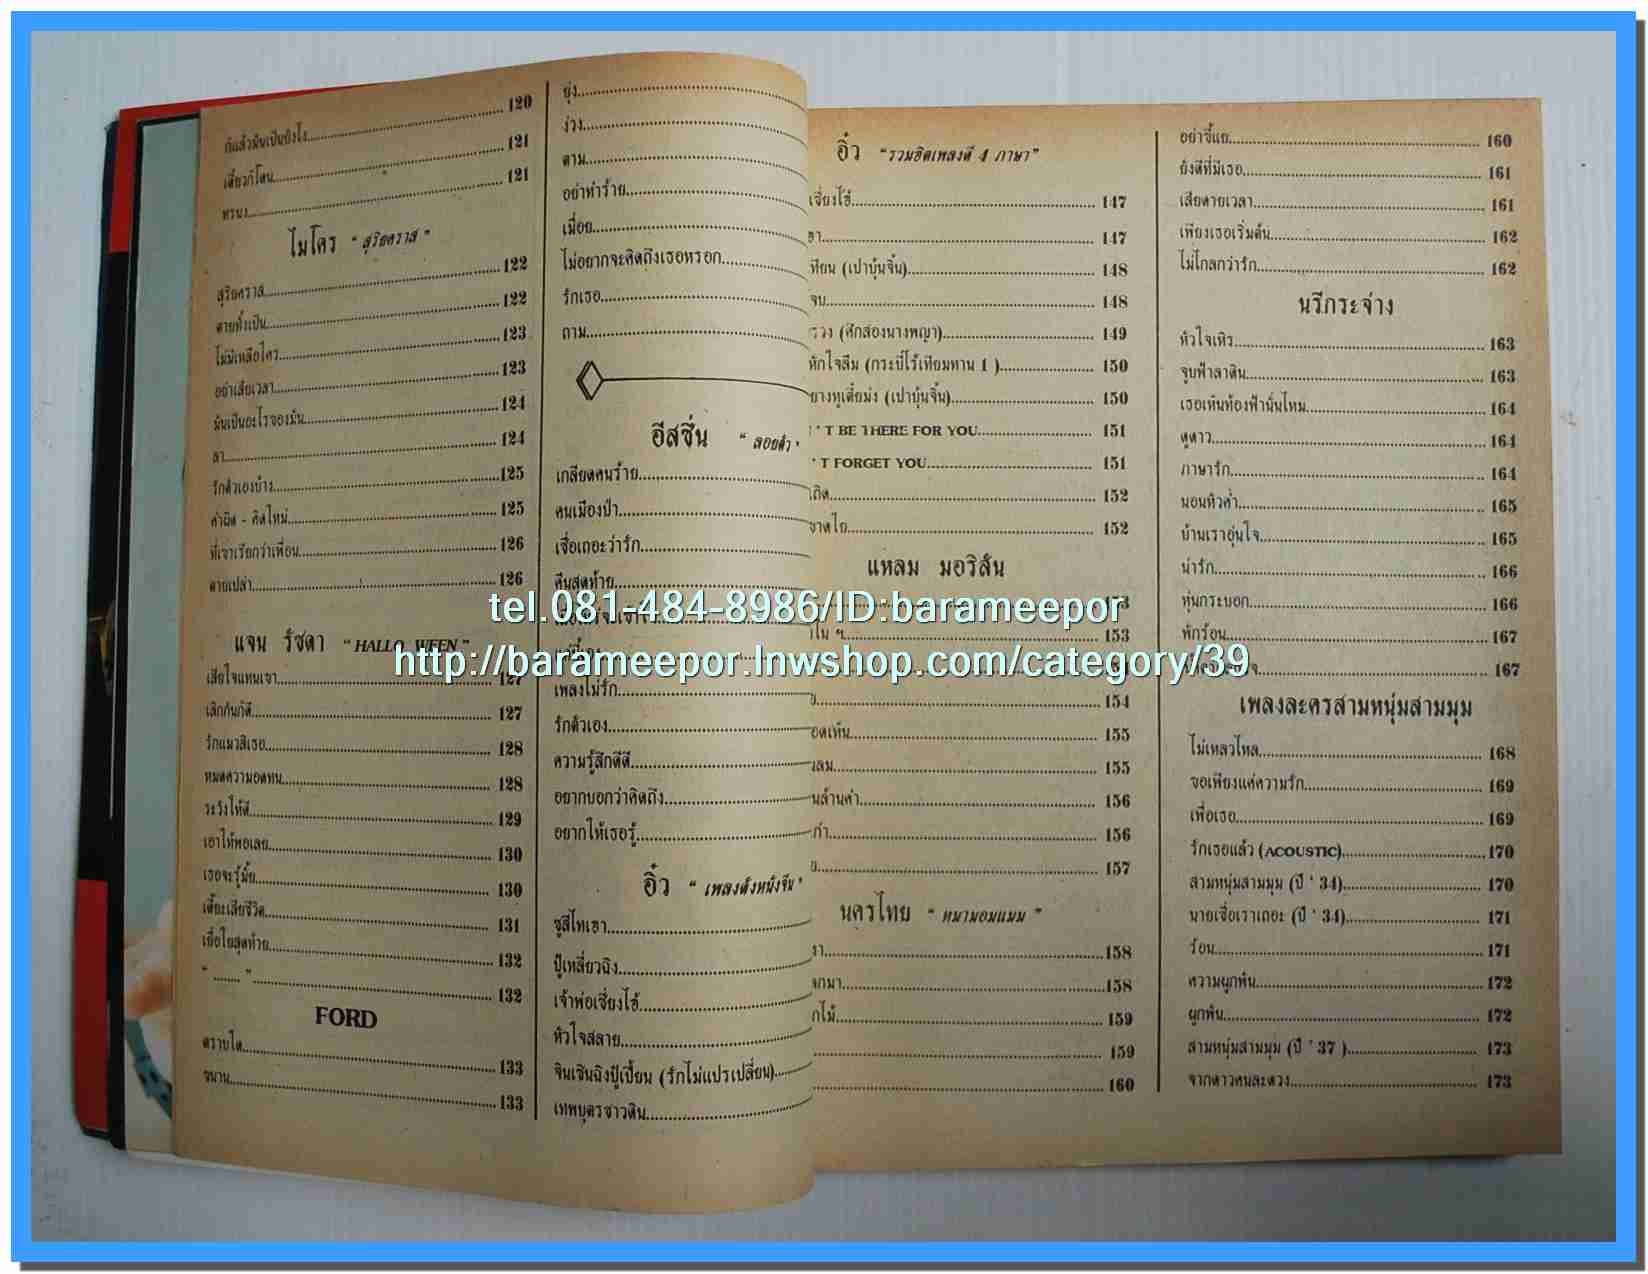 ก็แล้วมันเป็นยังไง 120
เดี๋ยวก็โดน 121
ทรนง 121
ไมโคร "สุริยคราส"
สุริยคราส 122
ตายทั้งเป็น 122
ไม่มีเหลือใคร 123
อย่าเสียเวลา 123
มันเป็นอะไรของมัน 124
ลา 124
รักตัวเองบ้าง 125
คำผิด - คิดใหม่ 125
ที่เขาเรียกว่าเพื่อน 126
ตายเปล่า 126
แจน รัชดา "HALLO WEEN"
เสียใจแทนเขา 127
เลิกกันก็ดี 127
รักแมวสิเธอ 128
หมดความอดทน 128
ระวังให้ดี 129
เอาให้พอเลย 130
เธอจะรู้มั้ย 130
เดี๋ยะเสียชีวิต 131
เยื่อใยสุดท้าย 132
"......." 132
FORD
ตราบใด 133
ขนาน 133
ยุ่ง
ง่วง
ตาม
อย่าทำร้าย
เมื่อย
ไม่อยากจะคิดถึงเธอหรอก
รักเธอ
ถาม
อีสซึ่น "ลอยลำ"
เกลียดคนร้าย
คนเมืองป่า
เชื่อเถอะว่ารัก
คืนสุดท้าย
เพลงไม่รัก
รักตัวเอง
ความรู้สึกดีดี
อยากบอกว่าคิดถึง
อยากให้เธอรู้
อิ๋ว "เพลงดังหนังจีน"
ซูสีไทเฮา
ปู้เหลี่ยวฉิง
เจ้าพ่อเซี่ยงไฮ้
หัวใจสลาย
จินเซินฉิงปู้เปี้ยน (รักไม่แปรเปลี่ยน)
เทพบุตรชาวดิน
อิ๋ว "รวมฮิตเพลงดี 4 ภาษา"
เซี่ยงไฮ้ 147
ฮา 147
ทียน (เปาบุ้นจิ้น) 148
จบ 148
รวง (ศึกสองนางพญา) 149
หักใจลืม (กระบี่ไร้เทียมทาน 1 ) 150
ยางทูเตี๋ยม่ง (เปาบุ้นจิ้น) 150
' T BE THERE FOR YOU 151
' T FORGET YOU 151
เถิด 152
ขาดใย 152
แหลม มอริสัน
153
153
154
อดเห็น 155
ลม 155
นล้านคำ 156
กำ 156
157
นครไทย "หมามอมแมม"
รา 158
ลกมา 158
กไม้ 159
159
160
อย่าขี้แย 160
ยังดีที่มีเธอ 161
เสียดายเวลา 161
เพียงเธอเริ่มต้น 162
ไม่ไกลกว่ารัก 162
นรีกระจ่าง
หัวใจเหิร 163
จูบฟ้าลาดิน 163
เธอเห็นท้องฟ้านั่นไหม 164
ดูดาว 164
ภาษารัก 164
นอนหิวค่ำ 165
บ้านเราอุ่นใจ 165
น่ารัก 166
หุ่นกระบอก 166
พักร้อน 167
167
เพลงละครสามหนุ่มสามมุม
ไม่เหลวไหล 168
ขอเพียงแค่ความรัก 169
เพื่อเธอ 169
รักเธอแล้ว (ACOUSTIC) 170
สามหนุ่มสามมุม (ปี ' 34) 170
นายเชื่อเราเถอะ (ปี ' 34) 171
ร้อน 171
ความผูกพัน 172
ผูกพัน 172
สามหนุ่มสามมุม (ปี ' 37 ) 173
จากดาวคนละดวง 173
tel.081-484-8986/ID:barameepor
http://barameepor.lnwshop.com/category/39